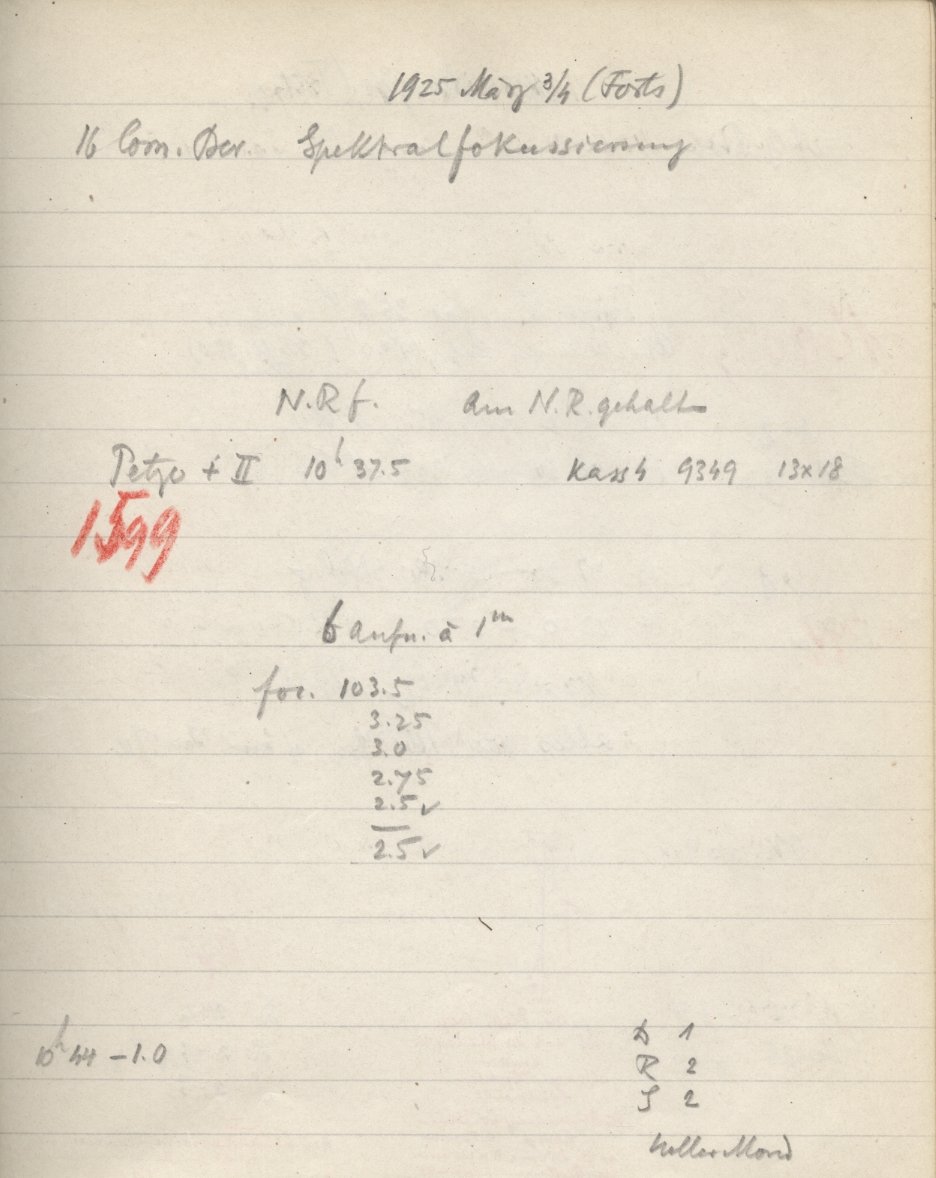 1925 März 3/4 (Forts)
16 Com. Ber. Spektralfokussierung
N.R f. am N.R. gehalten
Petzv + II 10h 37.5 Kass 4 9349 13x18
1599
6 Aufn. à 1m
foc. 103.5
3.25
3.0
2.75
2.5 ✓
2.5 ✓
10h 44 – 1.0
D 1
R 2
S 2
heller Mond